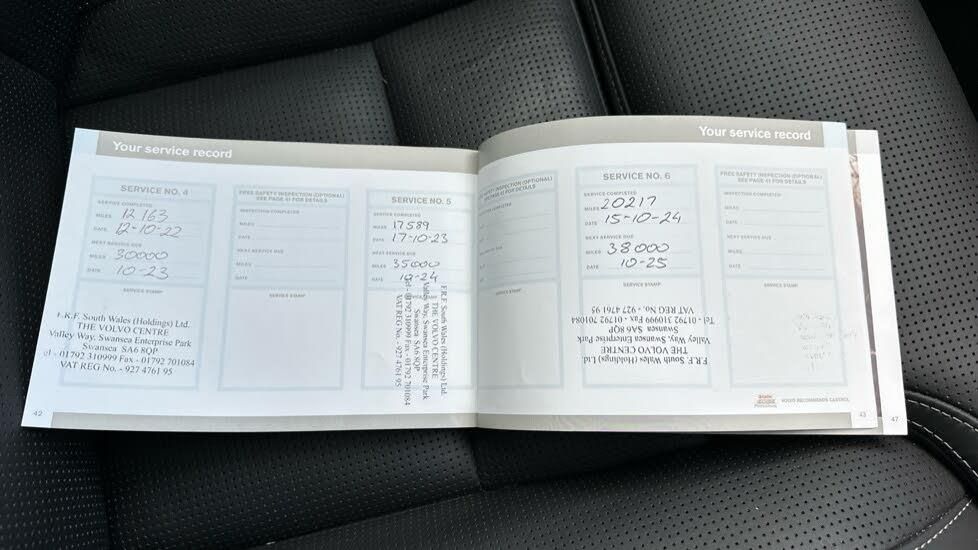 Your service record
SERVICE NO. 4
SERVICE COMPLETED
MILES 12 163
DATE 12-10-22
NEXT SERVICE DUE
MILES 30000
DATE 10-23
SERVICE STAMP
F.R.F. South Wales (Holdings) Ltd.
THE VOLVO CENTRE
Valley Way, Swansea Enterprise Park
Swansea SA6 8QP
el - 01792 310999 Fax - 01792 701084
VAT REG No. - 927 4761 95
42
FREE SAFETY INSPECTION (OPTIONAL)
SEE PAGE 41 FOR DETAILS
INSPECTION COMPLETED
MILES
DATE
NEXT SERVICE DUE
MILES
DATE
SERVICE STAMP
SERVICE NO. 5
SERVICE COMPLETED
MILES 17589
DATE 17-10-23
NEXT SERVICE DUE
MILES 35000
DATE 10-24
F.R.F. South Wales (Holdings) Ltd.
THE VOLVO CENTRE
Valley Way, Swansea Enterprise Park
Swansea SA6 8QP
Tel - 01792 310999 Fax - 01792 701084
VAT REG No. - 927 4761 95
Your service record
SAFETY INSPECTION (OPTIONAL)
SEE PAGE 41 FOR DETAILS
SERVICE NO. 6
SERVICE COMPLETED
MILES 20217
DATE 15-10-24
NEXT SERVICE DUE
MILES 38000
DATE 10-25
SERVICE STAMP
F.R.F. South Wales (Holdings) Ltd.
THE VOLVO CENTRE
Valley Way, Swansea Enterprise Park
Swansea SA6 8QP
Tel - 01792 310999 Fax - 01792 701084
VAT REG No. - 927 4761 95
FREE SAFETY INSPECTION (OPTIONAL)
SEE PAGE 41 FOR DETAILS
INSPECTION COMPLETED
MILES
DATE
NEXT SERVICE DUE
MILES
DATE
SERVICE STAMP
VOLVO RECOMMENDS CASTROL
43
47